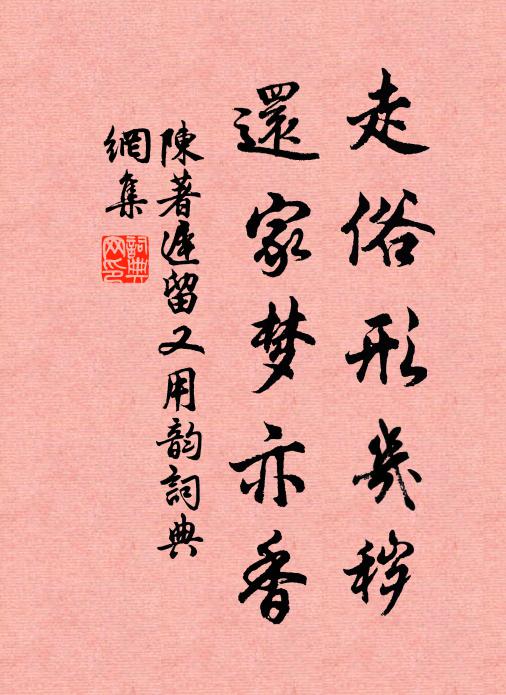 走俗形幾穢
還家梦亦香
陳著遲留又用韵詞典
網集
詞典
网印